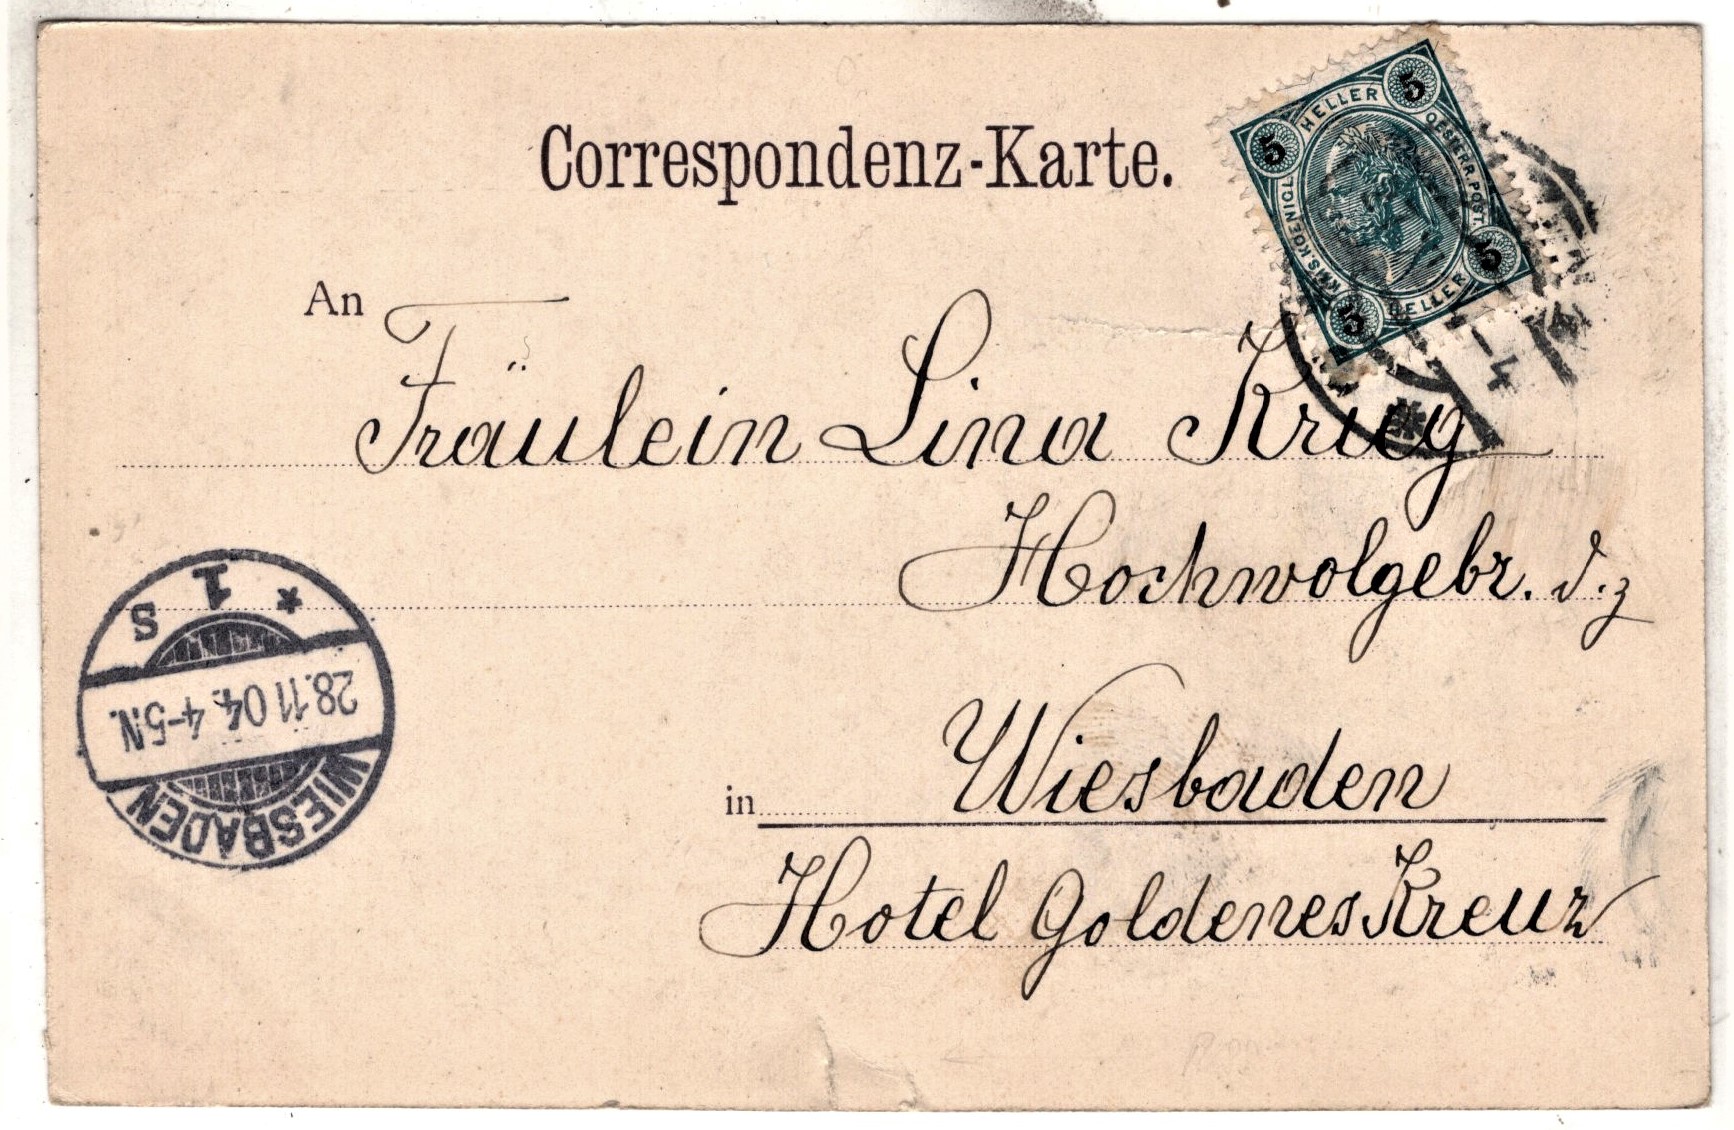 Correspondenz-Karte.
5 HELLER 5
KAIS. KOENIGL. OESTERR. POST.
5 HELLER 5
An
Fräulein Lina Krieg
Hochwolgebr. d. z
in Wiesbaden
Hotel Goldenes Kreuz
WIESBADEN
28.11 04. 4-5N.
* 1 s